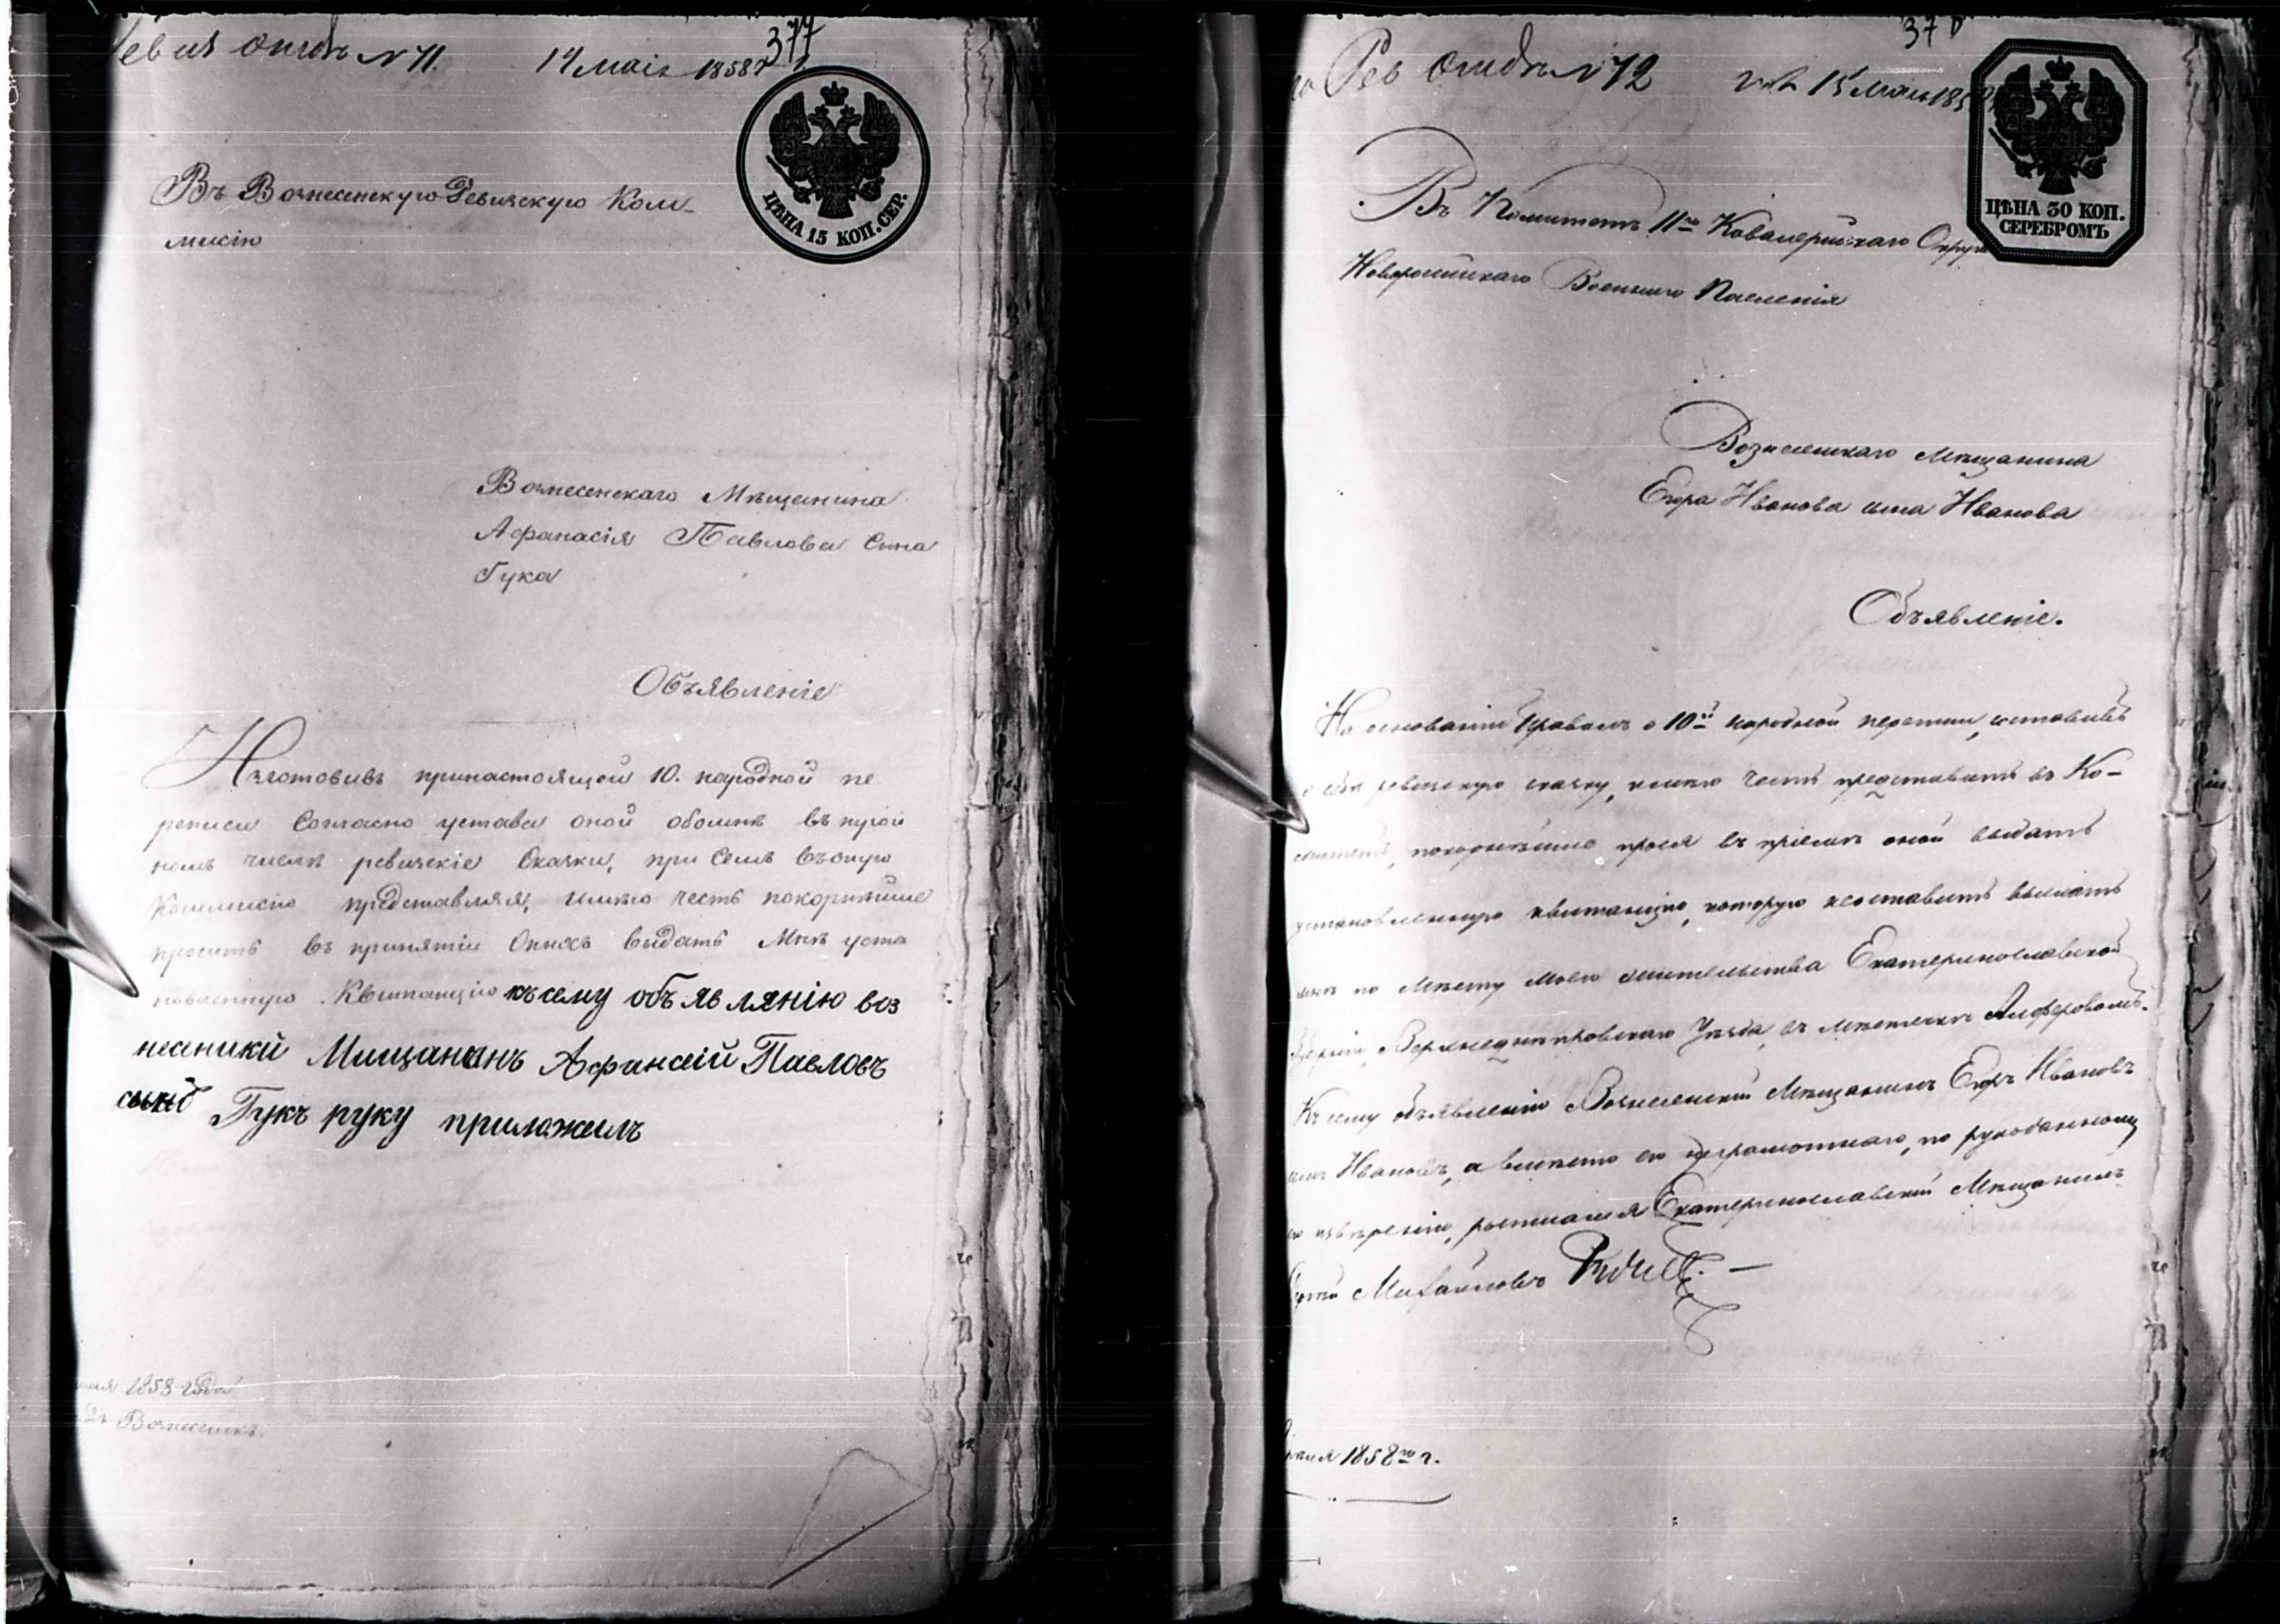 377
N 71. 14 мая 1858
ЦѢНА 15 КОП. СЕР.
Въ Вознесенскую Ревизскую Ком-
мисію
Вознесенскаго Мѣщанина
Афанасія Павлова Сына
Гука
Объявленіе
Изготовивъ принастоящей 10. народной пе
реписи Согласно устава оной обомнѣ въ
числѣ ревизскіе Сказки, при Семъ
Коммисію представляя, имѣю честь покорнѣйше
просить въ принятіи Оныхъ выдать Мнѣ уста
новленную Квитанцію къ сему объявлянію воз
несники Мищананъ Афинсеій Павловъ
сынъ Гукъ руку приложилъ
1858 года
Вознесенскъ
37
Рев N 72 15 мая 185
ЦѢНА 30 КОП.
СЕРЕБРОМЪ
Въ Комитетъ 11го Кавалерійскаго Округа
Новоросійскаго Военнаго Поселенія
Вознесенскаго мѣщанина
Егора Иванова сына Иванова
Объявленіе.
На основаніи Правилъ о 10й народной переписи, составивъ
о себѣ ревизскую сказку, имѣю честь представить въ Ко-
митетъ, покорнѣйше прося въ пріемѣ оной выдать
установленную квитанцію, которую неоставить выслать
мнѣ по мѣсту моего жительства Екатеринославской
Губерніи, Верхнеднѣпровскаго Уѣзда, въ мѣстечкѣ Алферовомъ.
Къ сему объявленію Вознесенскій Мѣщанинъ Егоръ Ивановъ
сынъ Ивановъ, а вмѣсто его неграмотнаго, по рукоданному
его увѣренію, росписался Екатеринославскій Мѣщанинъ
Михайловъ
1858го г.